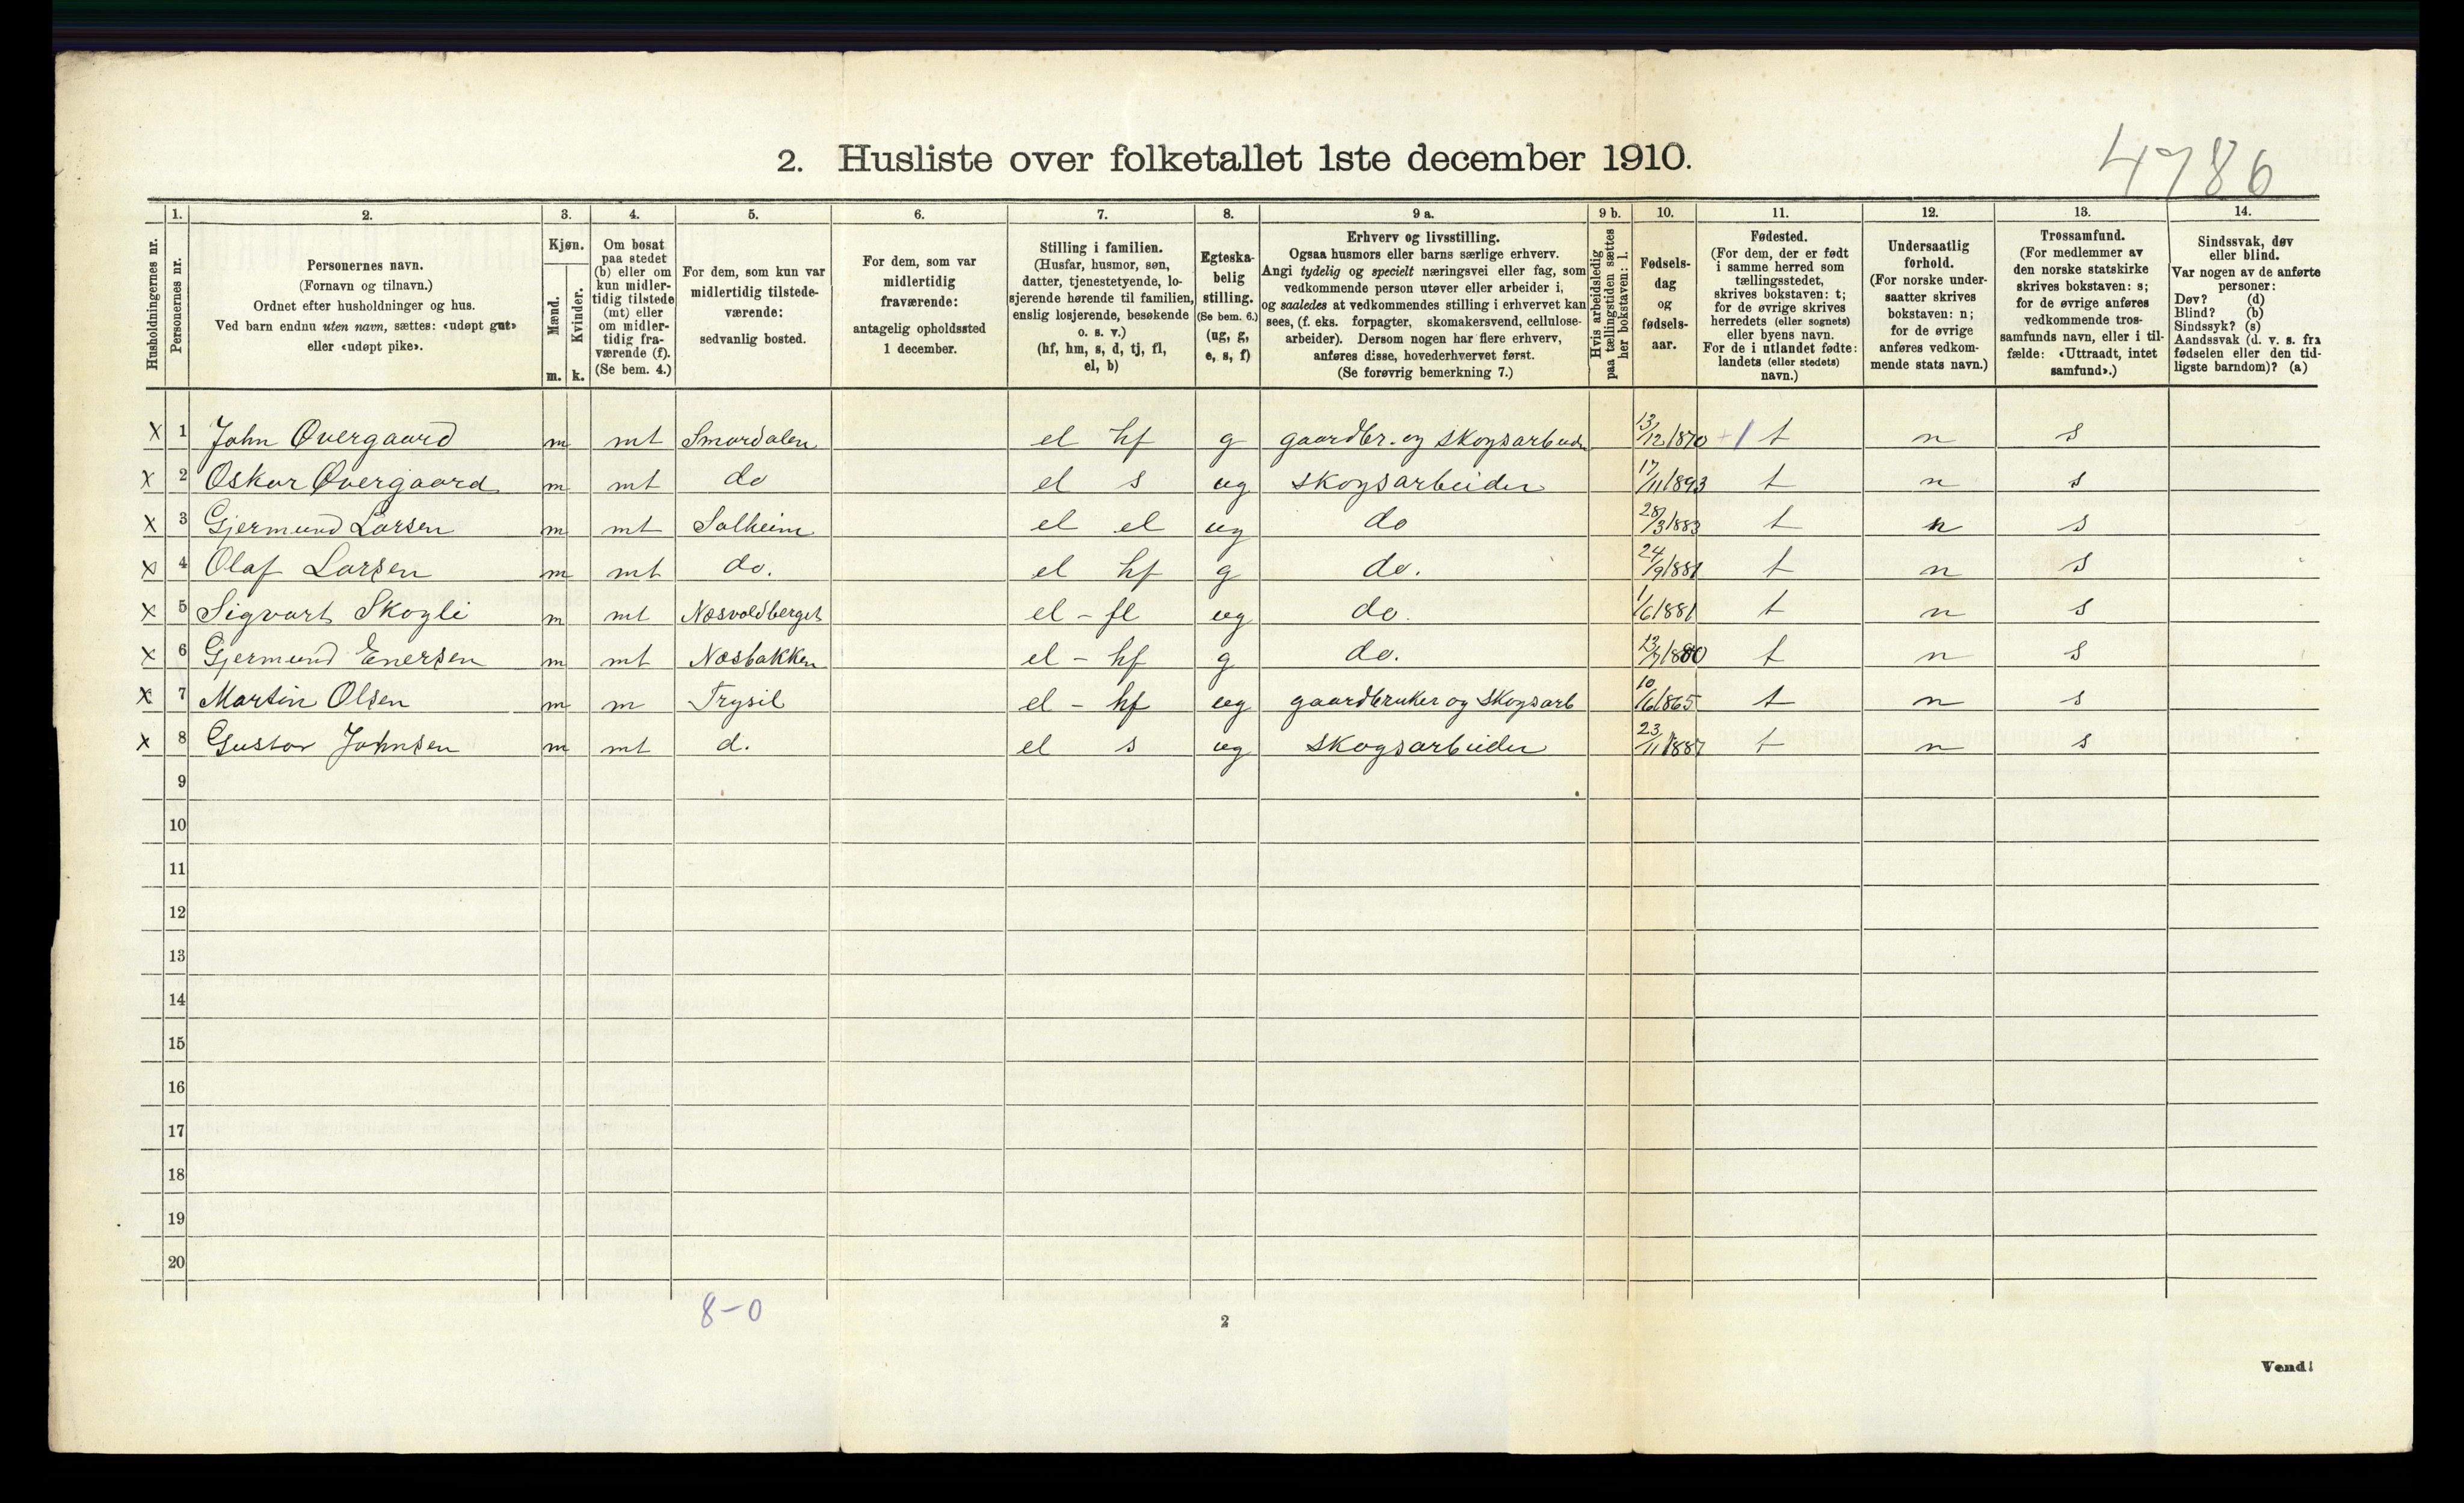 4786
2. Husliste over folketallet 1ste december 1910.
Husholdningernes nr.
1. Personernes nr.
2. Personernes navn.
(Fornavn og tilnavn.)
Ordnet efter husholdninger og hus.
Ved barn endnu uten navn, sættes: «udøpt gut»
eller «udøpt pike».
3. Kjøn.
Mænd. m.
Kvinder. k.
4. Om bosat
paa stedet
(b) eller om
kun midler-
tidig tilstede
(mt) eller
om midler-
tidig fra-
værende (f).
(Se bem. 4.)
5. For dem, som kun var
midlertidig tilstede-
værende:
sedvanlig bosted.
6. For dem, som var
midlertidig
fraværende:
antagelig opholdssted
1 december.
7. Stilling i familien.
(Husfar, husmor, søn,
datter, tjenestetyende, lo-
sjerende hørende til familien,
enslig losjerende, besøkende
o. s. v.)
(hf, hm, s, d, tj, fl,
el, b)
8. Egteska-
belig
stilling.
(Se bem. 6.)
(ug, g,
e, s, f)
9 a. Erhverv og livsstilling.
Ogsaa husmors eller barns særlige erhverv.
Angi tydelig og specielt næringsvei eller fag, som
vedkommende person utøver eller arbeider i,
og saaledes at vedkommendes stilling i erhvervet kan
sees, (f. eks. forpagter, skomakersvend, cellulose-
arbeider). Dersom nogen har flere erhverv,
anføres disse, hovederhvervet først.
(Se forøvrig bemerkning 7.)
9 b. Hvis arbeidsledig
paa tællingstiden sættes
her bokstaven: l.
10. Fødsels-
dag
og
fødsels-
aar.
11. Fødested.
(For dem, der er født
i samme herred som
tællingsstedet,
skrives bokstaven: t;
for de øvrige skrives
herredets (eller sognets)
eller byens navn.
For de i utlandet fødte:
landets (eller stedets)
navn.)
12. Undersaatlig
forhold.
(For norske under-
saatter skrives
bokstaven: n;
for de øvrige
anføres vedkom-
mende stats navn.)
13. Trossamfund.
(For medlemmer av
den norske statskirke
skrives bokstaven: s;
for de øvrige anføres
vedkommende tros-
samfunds navn, eller i til-
fælde: «Uttraadt, intet
samfund».)
14. Sindssvak, døv
eller blind.
Var nogen av de anførte
personer:
Døv? (d)
Blind? (b)
Sindssyk? (s)
Aandssvak (d. v. s. fra
fødselen eller den tid-
ligste barndom)? (a)
X 1 John Øvergaard m mt Smordalen el hf g gaardbr. og skogsarbeider 13/12 1870 t n s
X 2 Oskar Øvergaard m mt do el s ug skogsarbeider 17/11 1893 t n s
X 3 Gjermund Larsen m mt Solheim el el ug do 28/3 1883 t n s
X 4 Olaf Larsen m mt do. el hf g do. 24/9 1881 t n s
X 5 Sigvart Skogli m mt Næsvoldberget el - fl ug do. 1/6 1881 t n s
X 6 Gjermund Enersen m mt Næsbakken el - hf g do. 13/7 1880 t n s
X 7 Martin Olsen m m Trysil el - hf ug gaardbruker og skogsarb 10/6 1865 t n s
X 8 Gustav Johnsen m mt d. el s ug skogsarbeider 23/11 1887 t n s
9
10
11
12
13
14
15
16
17
18
19
20
8-0
2
Vend!